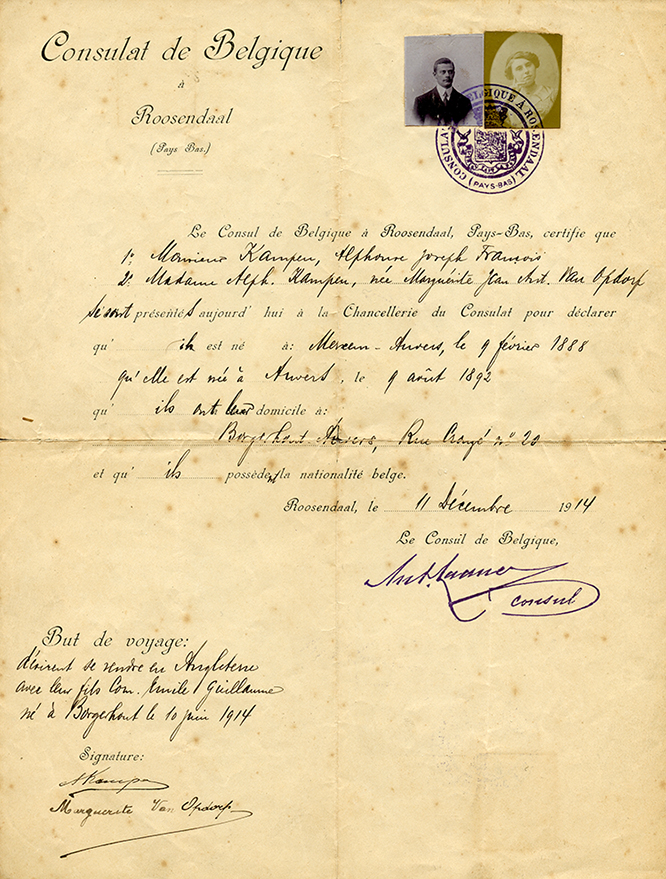 Consulat de Belgique
à
Roosendaal
(Pays Bas.)
CONSULAT DE BELGIQUE À ROSENDAAL
(PAYS-BAS)
Le Consul de Belgique à Roosendaal, Pays-Bas, certifie que
1º Monsieur Kampen, Alphonse Joseph François
2º Madame Alph. Kampen, née Marguérite Jean Ant. Van Opdorp
se sont présentés aujourd'hui à la Chancellerie du Consulat pour déclarer
qu' il est né à: Merxem-Anvers, le 9 février 1888
qu'elle est née à Anvers, le 9 août 1892
qu' ils ont leur domicile à:
Borgerhout-Anvers, Rue nº 20
et qu' ils possèdent la nationalité belge.
Roosendaal, le 11 Décembre 1914
Le Consul de Belgique,
Ant.
consul
But de voyage:
désirent se rendre en Angleterre
avec leur fils Com. Emile Guillaume
né à Borgerhout le 10 juin 1914
Signature:
AKampen
Marguerite Van Opdorp